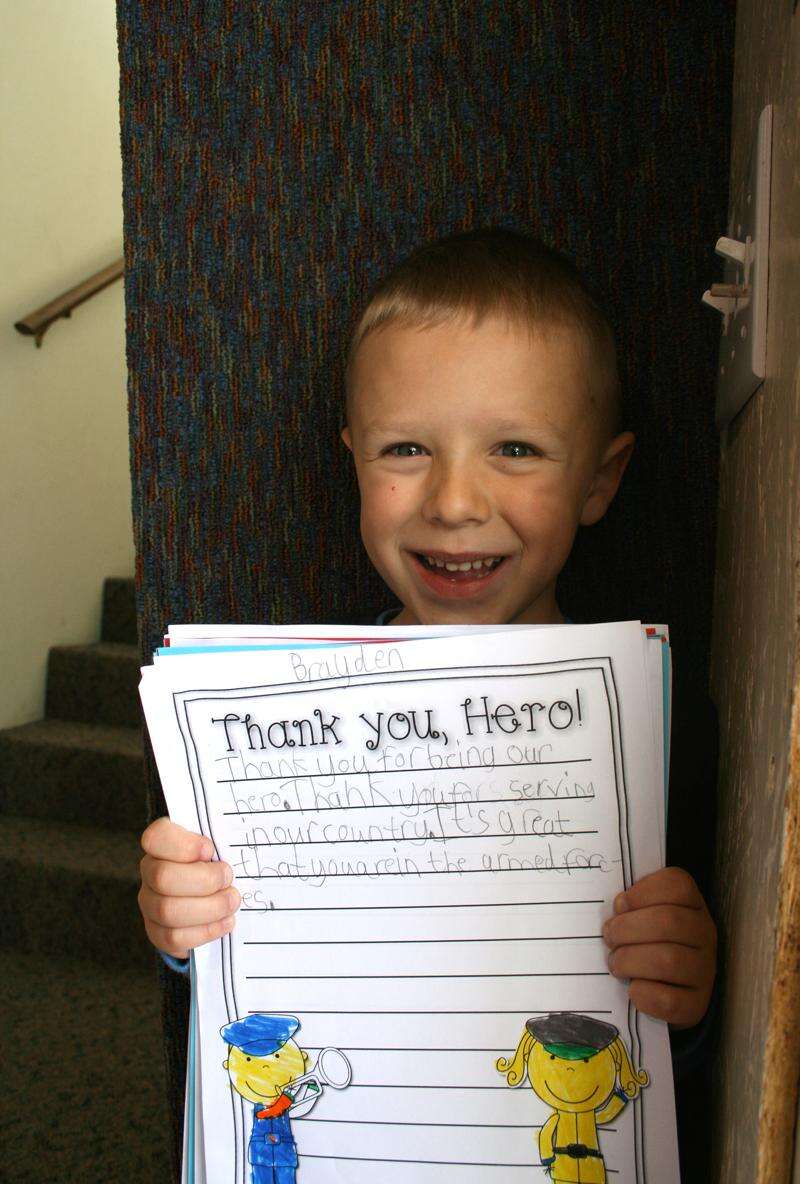 Brayden
Thank you, Hero!
Thank you for being our
hero. Thank you for serving
in our country. It's great
that you are in the armed forc-
es.